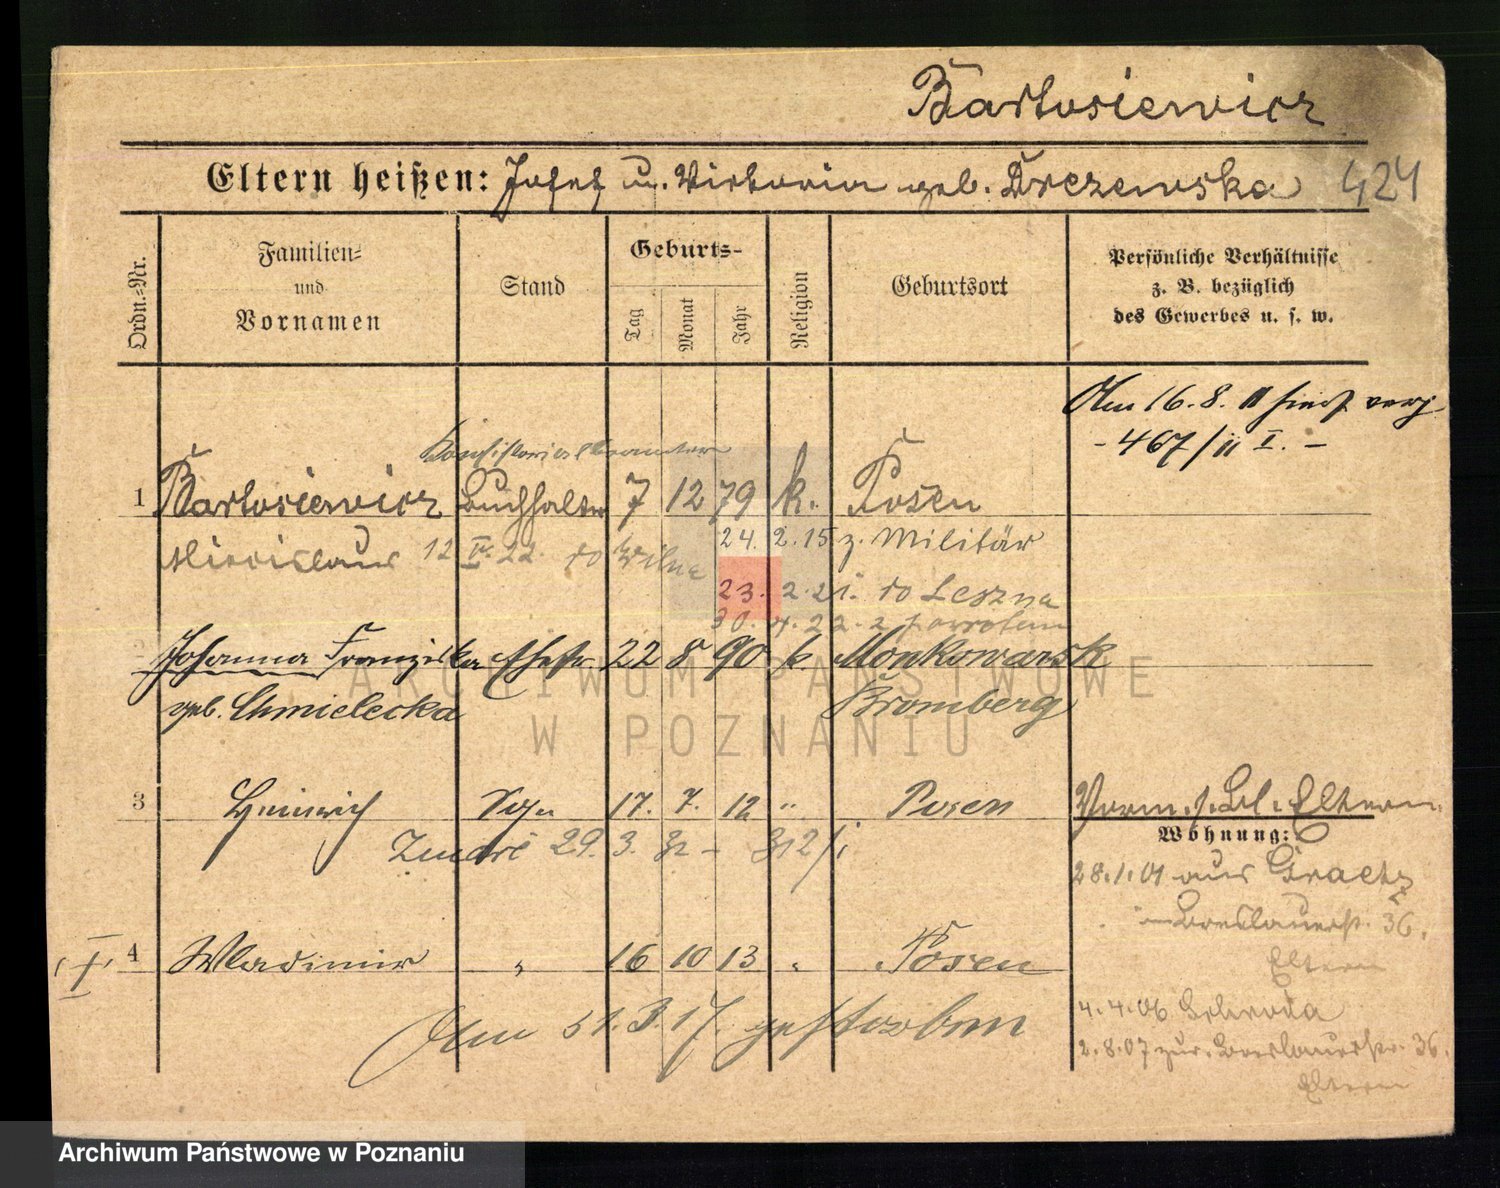 Bartosiewicz
Eltern heißen: Josef u. Victoria geb. Drezewska 424
Ordn.-Nr.
Familien- und Vornamen
Stand
Geburts-
Tag
Monat
Jahr
Religion
Geburtsort
Persönliche Verhältnisse
z. B. bezüglich
des Gewerbes u. s. w.
Am 16.8.11 hierh. verz.
- 467/11 I. -
Konsistorialbeamter
1 Bartosiewicz Buchhalter 7 12 79 k. Posen
24. 2. 15 z. Militär
Miecislaus 12 IV. 22 do Wilna
23. 2. 21. do Leszna
30. 4. 22. z powrotem
2 Johanna Franziska Ehefr. 22 8 90 k. Monkowarsk
geb. Chmielecka Bromberg
3 Heinrich Sohn 17. 7. 12 " Posen
Vorm. s. Bl. Eltern
Wohnung:
29. 3. 312/
28.1.01 aus Graetz
Breslauerstr. 36.
Eltern
4 Wladimir " 16 10 13 " Posen
Am 31.3.17. gestorben
4.4.06 Schroda
2.8.07 zur. Breslauerstr. 36.
Eltern
ARCHIWUM PAŃSTWOWE
W POZNANIU
Archiwum Państwowe w Poznaniu